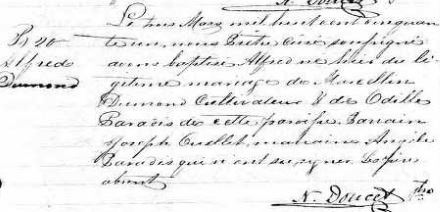 N. Doucet
Le trois Mars mil huit cent cinquan
te un, nous Prêtre Curé soussigné
B 20
Alfred
Dumond
avons baptisé Alfred né hier du lé
gitime mariage de Marcellin
Dumond Cultivateur & de Odille
Paradis de cette paroisse. Parrain
Joseph Ouellet, marraine Angèle
Paradis qui n'ont su signer. Le père
absent
N. Doucet Ptre